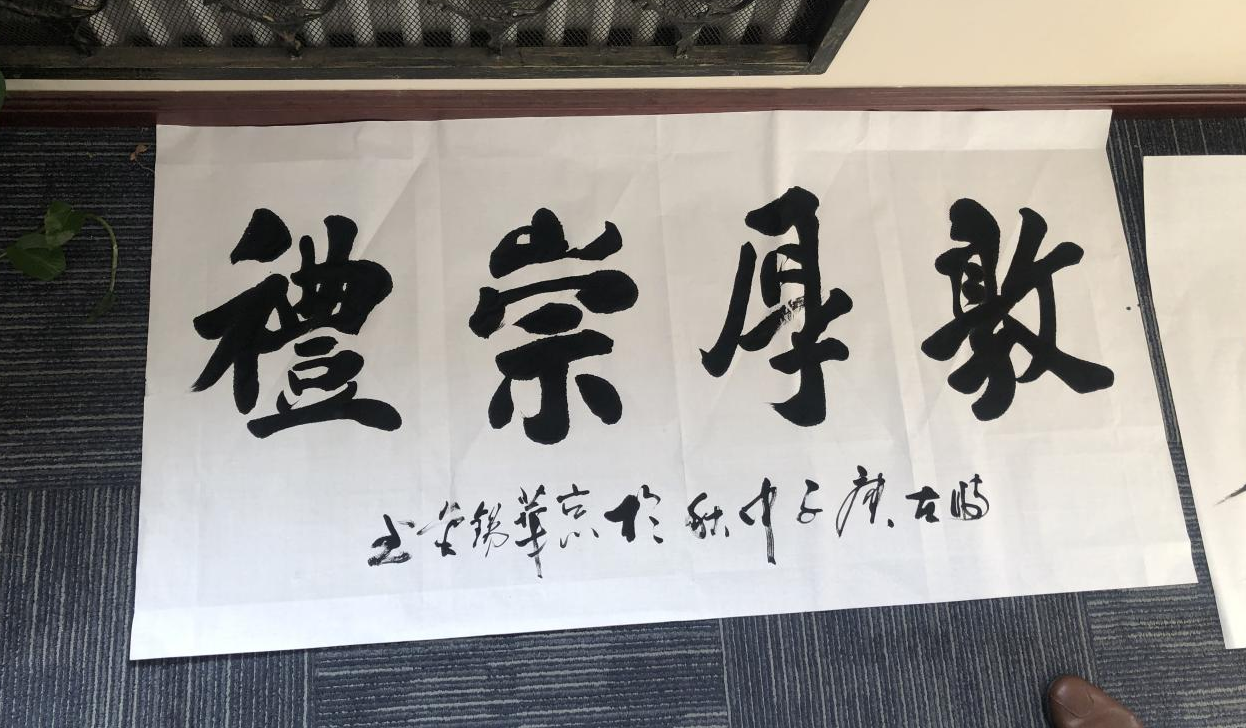 敦厚崇禮
時在庚子中秋於京華錫安書